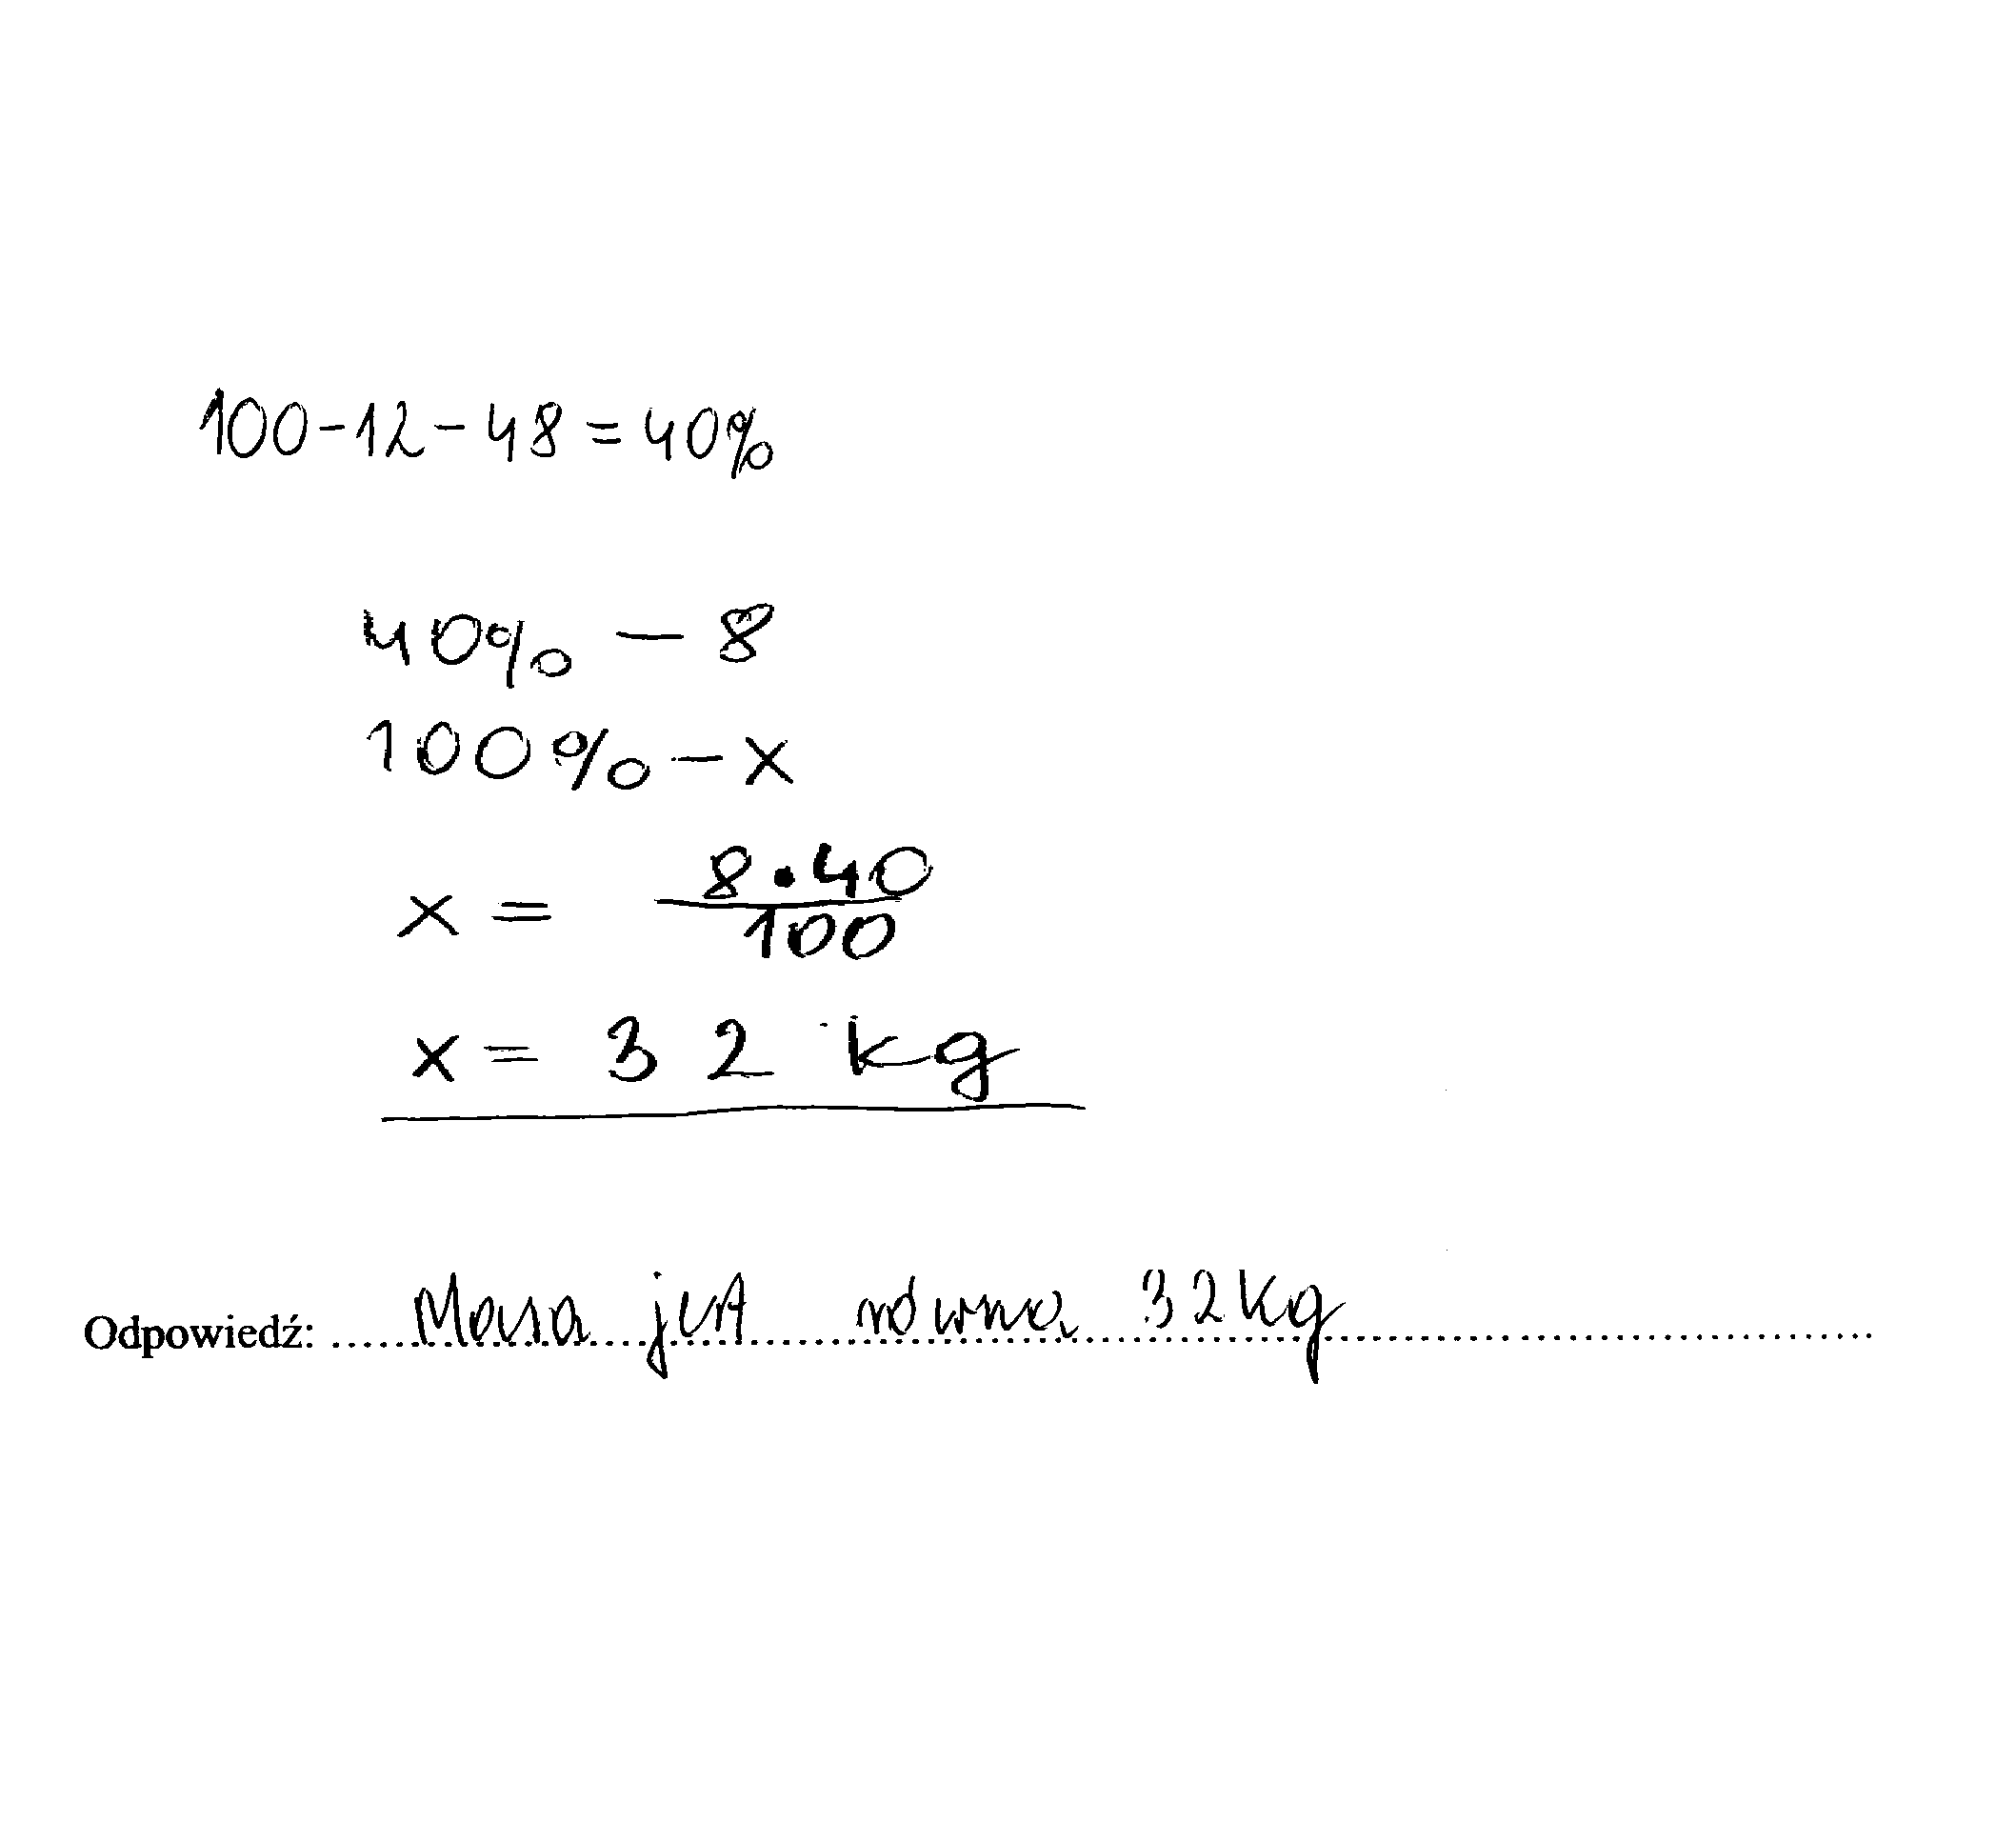 100-12-48=40%
40% - 8
100% - x
x = 8·40
100
x = 32 kg
Odpowiedź: Masa jest równa 32kg